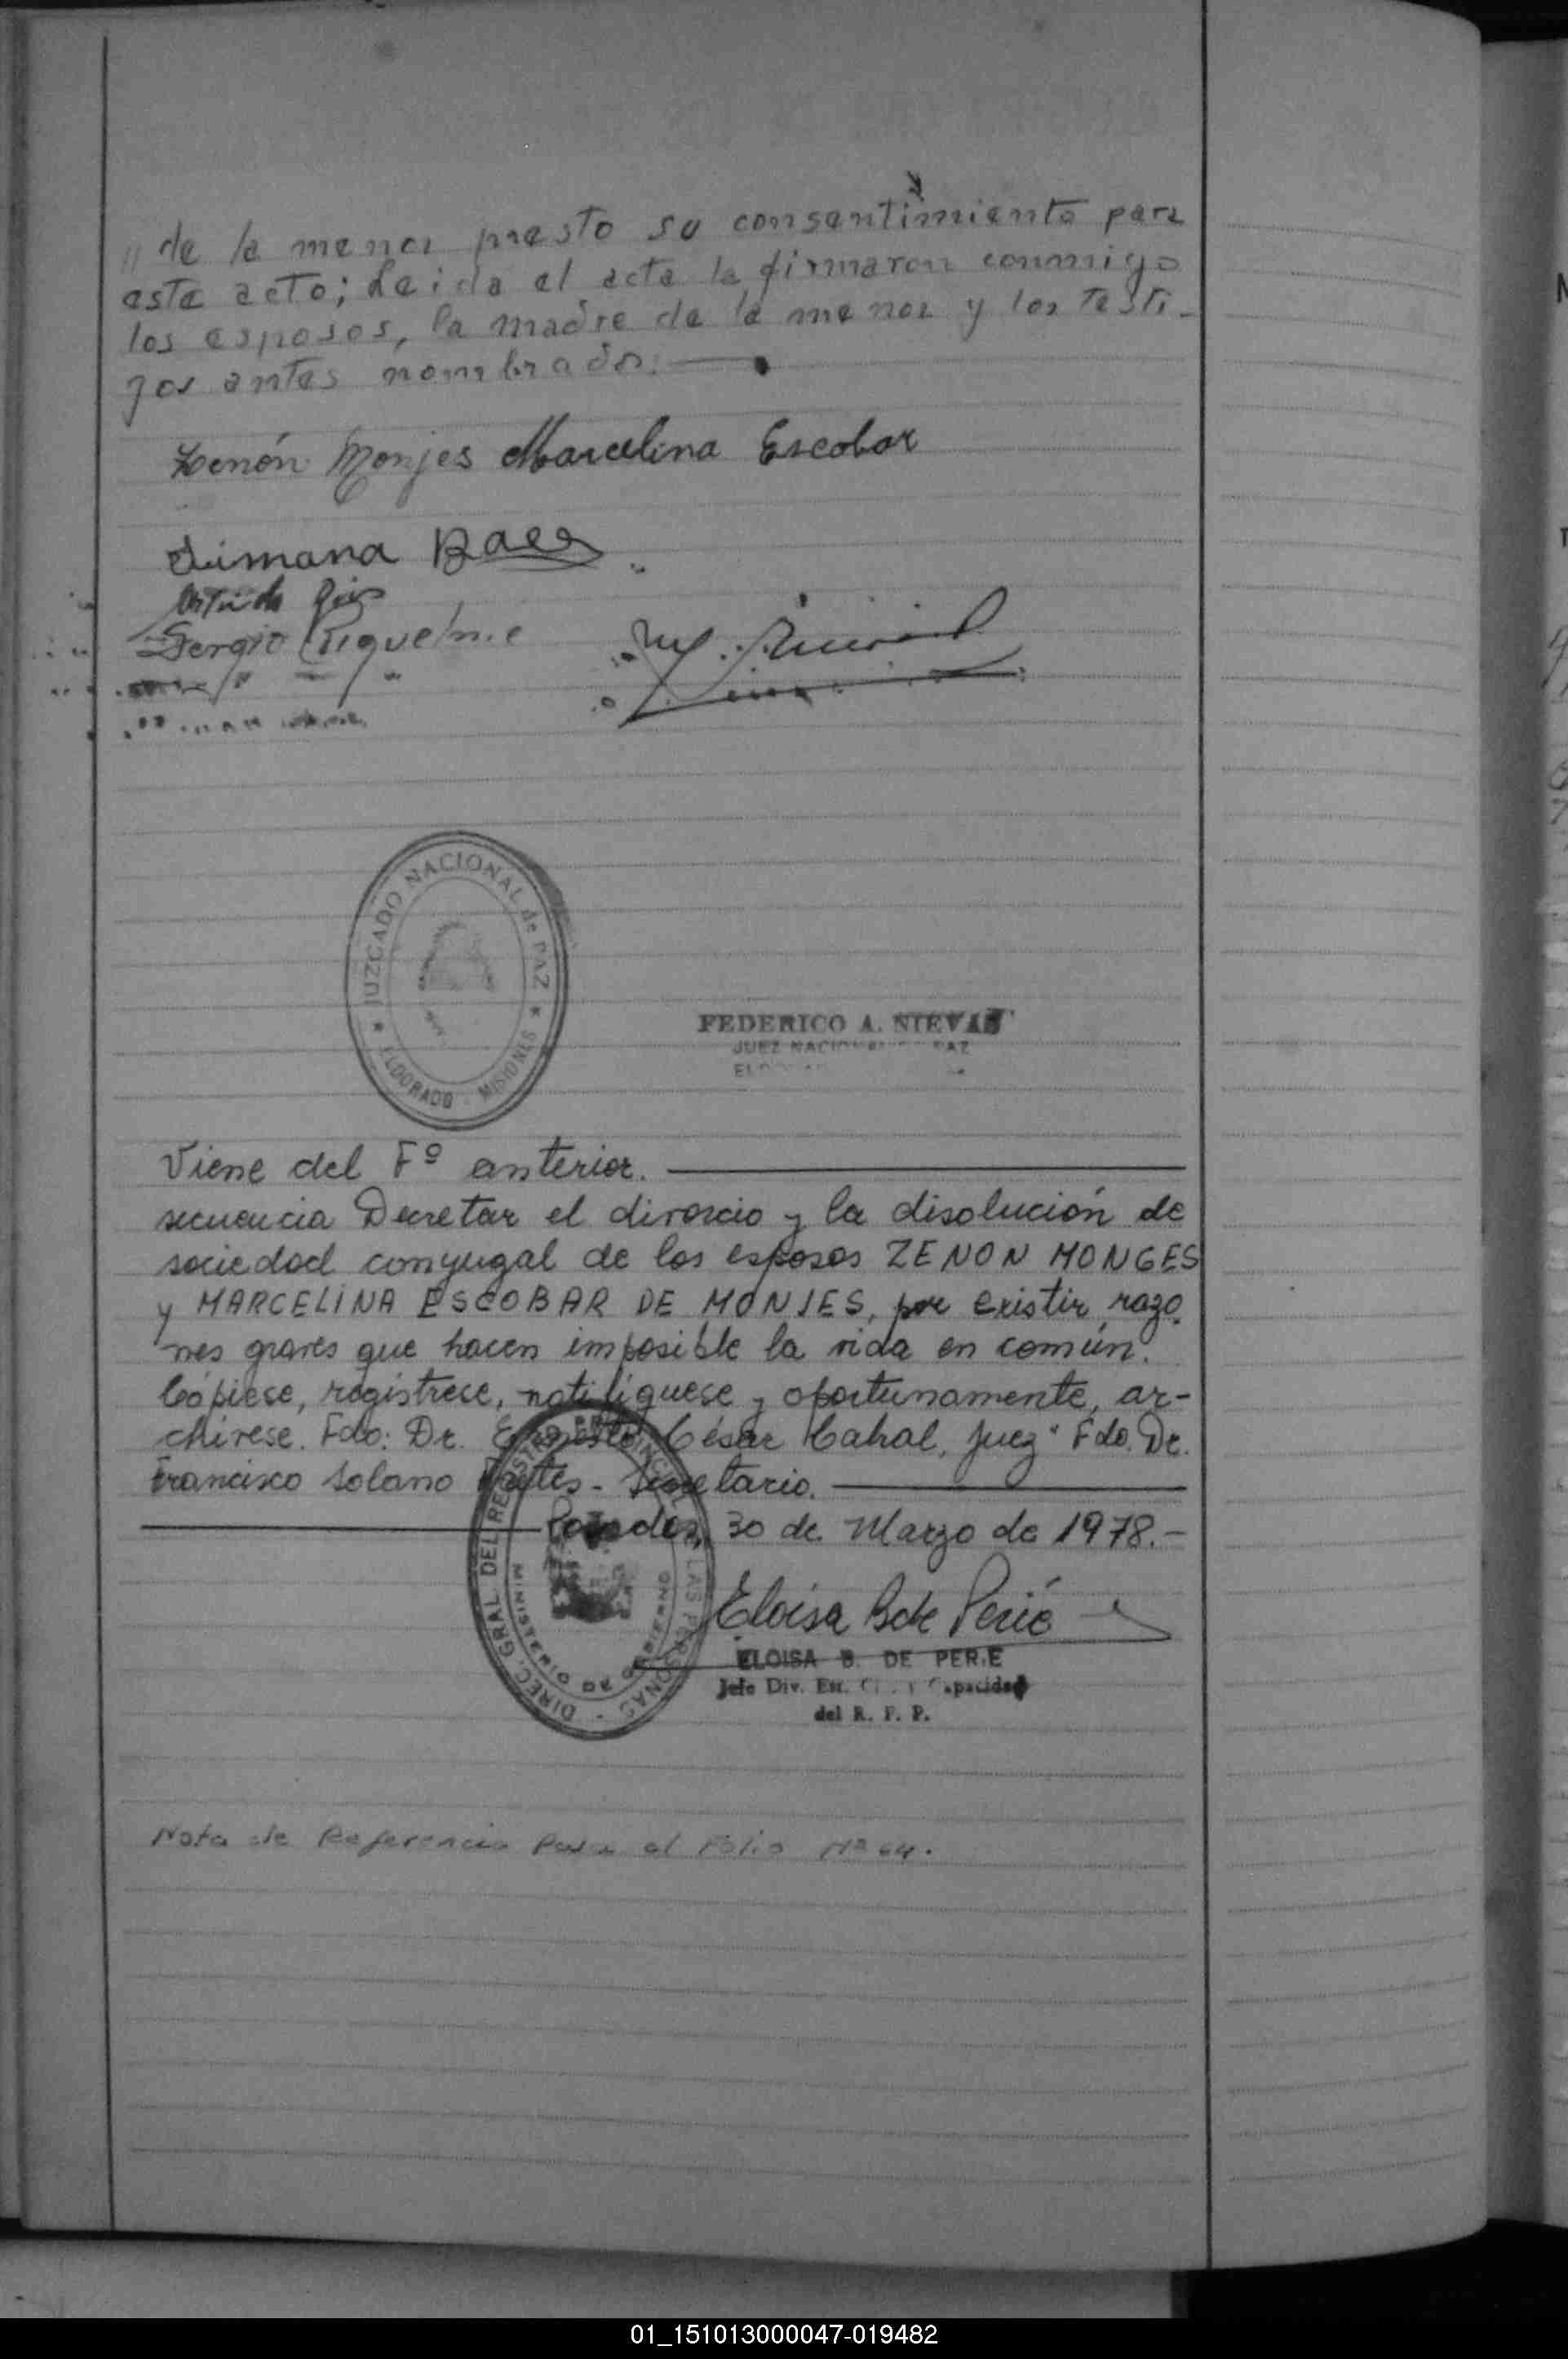 // de la menor presto su consentimiento para
este acto; Leida el acta la firmaron conmigo
los esposos, la madre de la menor y los testi-
gos antes nombrados.
Zenón Monjes Marcelina Escobar
Baez
Sergio Riquelme
JUZGADO NACIONAL de PAZ
ELDORADO - MISIONES
FEDERICO A. NIEVAS
JUEZ NACIONAL DE PAZ
Viene del Fº anterior.
secuencia Decretar el divorcio y la disolución de
sociedad conyugal de los esposos ZENON MONGES
y MARCELINA ESCOBAR DE MONJES, por existir razo.
nes graves que hacen imposible la vida en común.
Cópiese, regístrese, notifíquese y oportunamente, ar-
chívese. Fdo: Dr. Ernesto César Cabral, Juez" Fdo. Dr.
Francisco Solano - Secretario.
Posadas, 30 de Marzo de 1978.-
DIREC. GRAL DEL REGISTRO PROVINCIAL DE LAS PERSONAS
MINISTERIO DE GOBIERNO
Eloisa B de Perié
ELOISA B. DE PERIE
Jefe Div. Est. Capacidad
del R. P. P.
Nota de Referencia Pasa al Folio Nº 64.
01_151013000047-019482